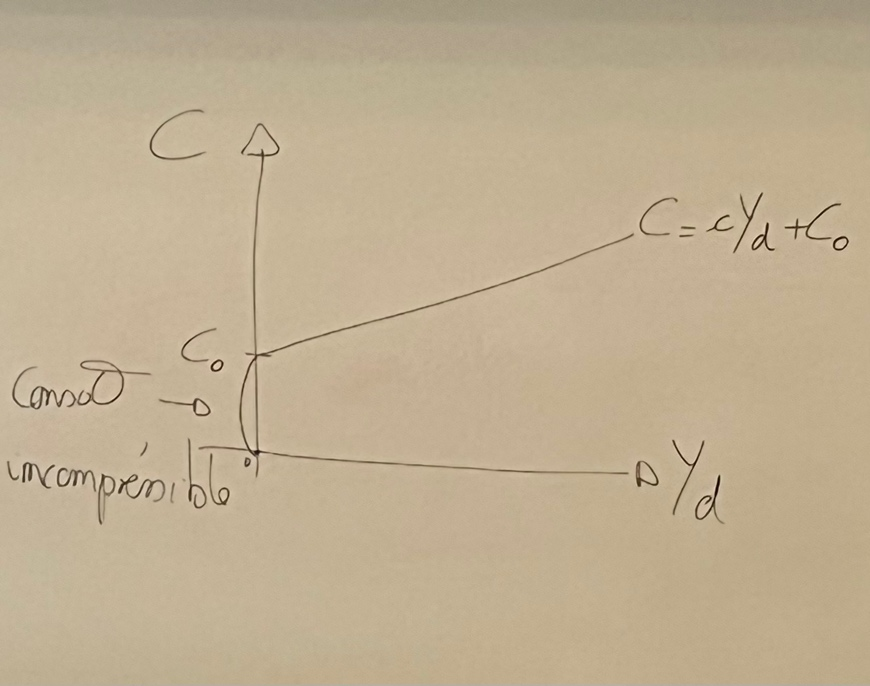 C
C = cYd + C₀
C₀
Conso°
incomprésible
0
Yd